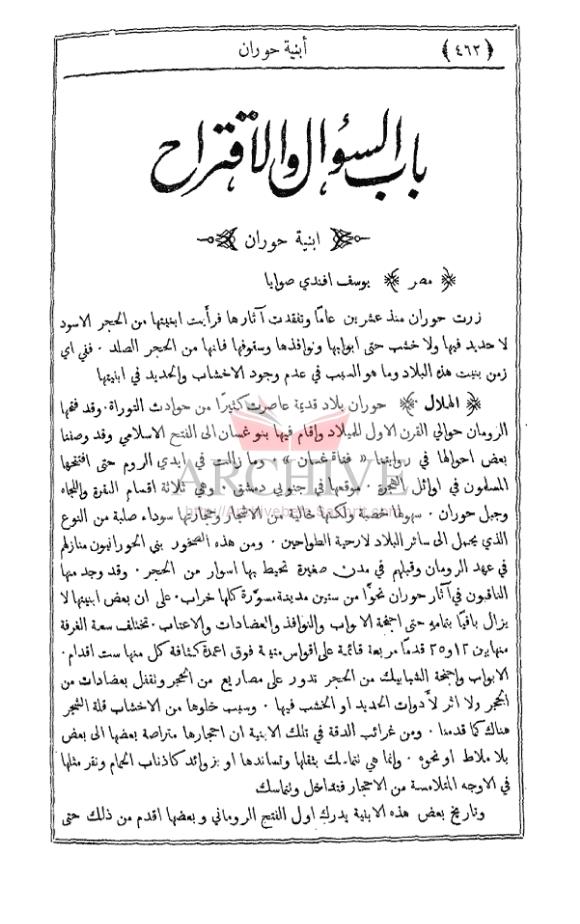 ﴿٤٦٣﴾ أبنية حوران
باب السؤال والاقتراح
ابنية حوران
﴿ مصر ﴾ يوسف افندي صوايا
زرت حوران منذ عشرين عامًا وتفقدت آثارها فرأيت ابنيتها من الحجر الاسود
لا حديد فيها ولا خشب حتى ابوابها ونوافذها وسقوفها فانها من الحجر الصلد ٠ ففي اي
زمن بنيت هذه البلاد وما هو السبب في عدم وجود الاخشاب والحديد في ابنيتها
﴿ الهلال ﴾ حوران بلاد قديمة عاصرت كثيرًا من حوادث التوراة ٠ وقد فتحها
الرومان حوالي القرن الاول للميلاد واقام فيها بنو غسان الى الفتح الاسلامي وقد وصفنا
بعض احوالها في روايتنا « فتاة غسان » ٠ وما زالت في ايدي الروم حتى افتتحها
المسلمون في اوائل الهجرة ٠ موقعها في جنوبي دمشق ٠ وهي ثلاثة اقسام النقرة واللجاه
وجبل حوران ٠ سهولها خصبة ولكنها خالية من الاشجار وحجارتها سوداء صلبة من النوع
الذي يحمل الى سائر البلاد لارحية الطواحين ٠ ومن هذه الصخور بنى الحورانيون منازلهم
في عهد الرومان وقبلهم في مدن صغيرة تحيط بها اسوار من الحجر ٠ وقد وجد منها
الناقبون في آثار حوران نحوًا من ستين مدينة مسوّرة كلها خراب ٠ على ان بعض ابنيتها لا
يزال باقيًا بتمامهِ حتى اجنحة الابواب والنوافذ والعضادات والاعتاب ٠ تختلف سعة الغرفة
منها بين ١٢ و٢٥ قدمًا مربعة قائمة على اقواس متينة فوق اعمدة كثافة كل منها ست اقدام ٠
الابواب واجنحة الشبابيك من الحجر تدور على مصاريع من الحجر وتقفل بعضادات من
الحجر ولا اثر لأدوات الحديد او الخشب فيها ٠ وسبب خلوها من الاخشاب قلة الشجر
هناك كما قدمنا ٠ ومن غرائب الدقة في تلك الابنية ان احجارها متراصة بعضها الى بعض
بلا ملاط او نحوه ٠ وانما هي تتماسك بثقلها وتساندها او بزوائد كاذناب الحمام ونقر مثلها
في الاوجه المتلامسة من الاحجار فتتداخل وتتماسك
وتاريخ بعض هذه الابنية يدرك اول الفتح الروماني وبعضها اقدم من ذلك حتى
ARCHIVE